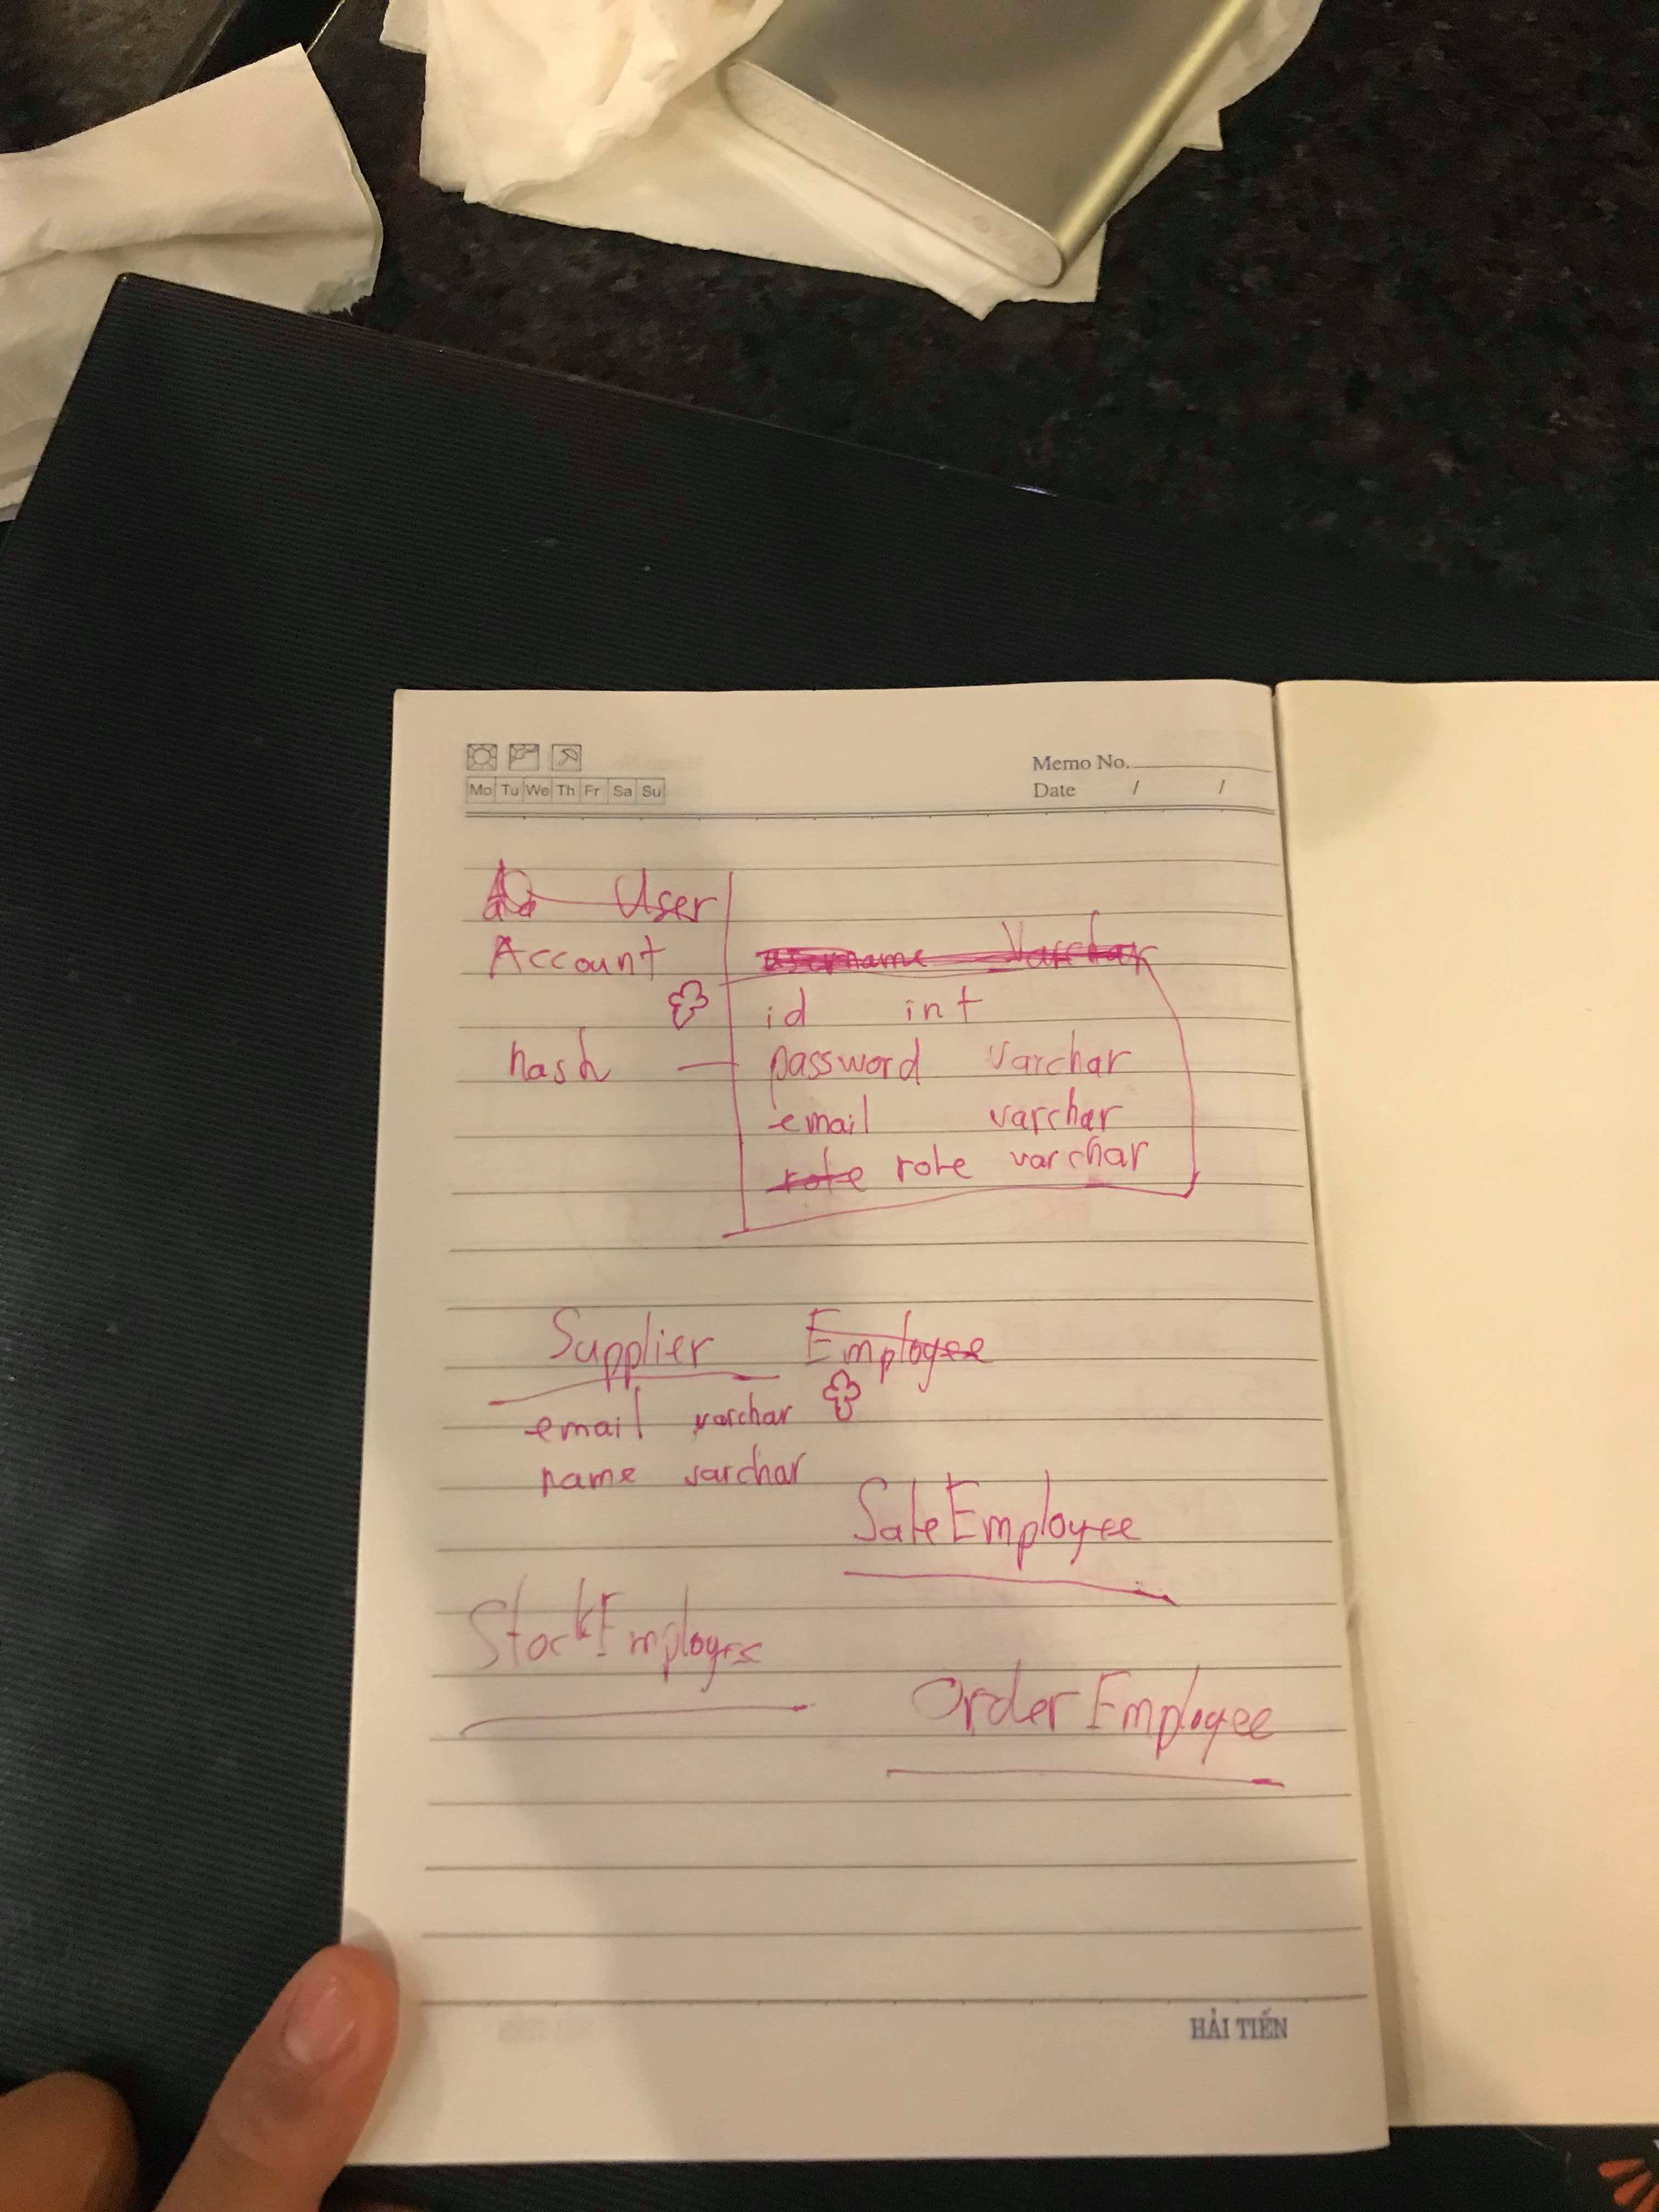 Mo Tu We Th Fr Sa Su
Memo No.
Date / /
User
Account
username Varchar
id int
hash password varchar
email varchar
role role varchar
Supplier Employee
email varchar
name varchar
SaleEmployee
StockEmployee
OrderEmployee
HẢI TIẾN